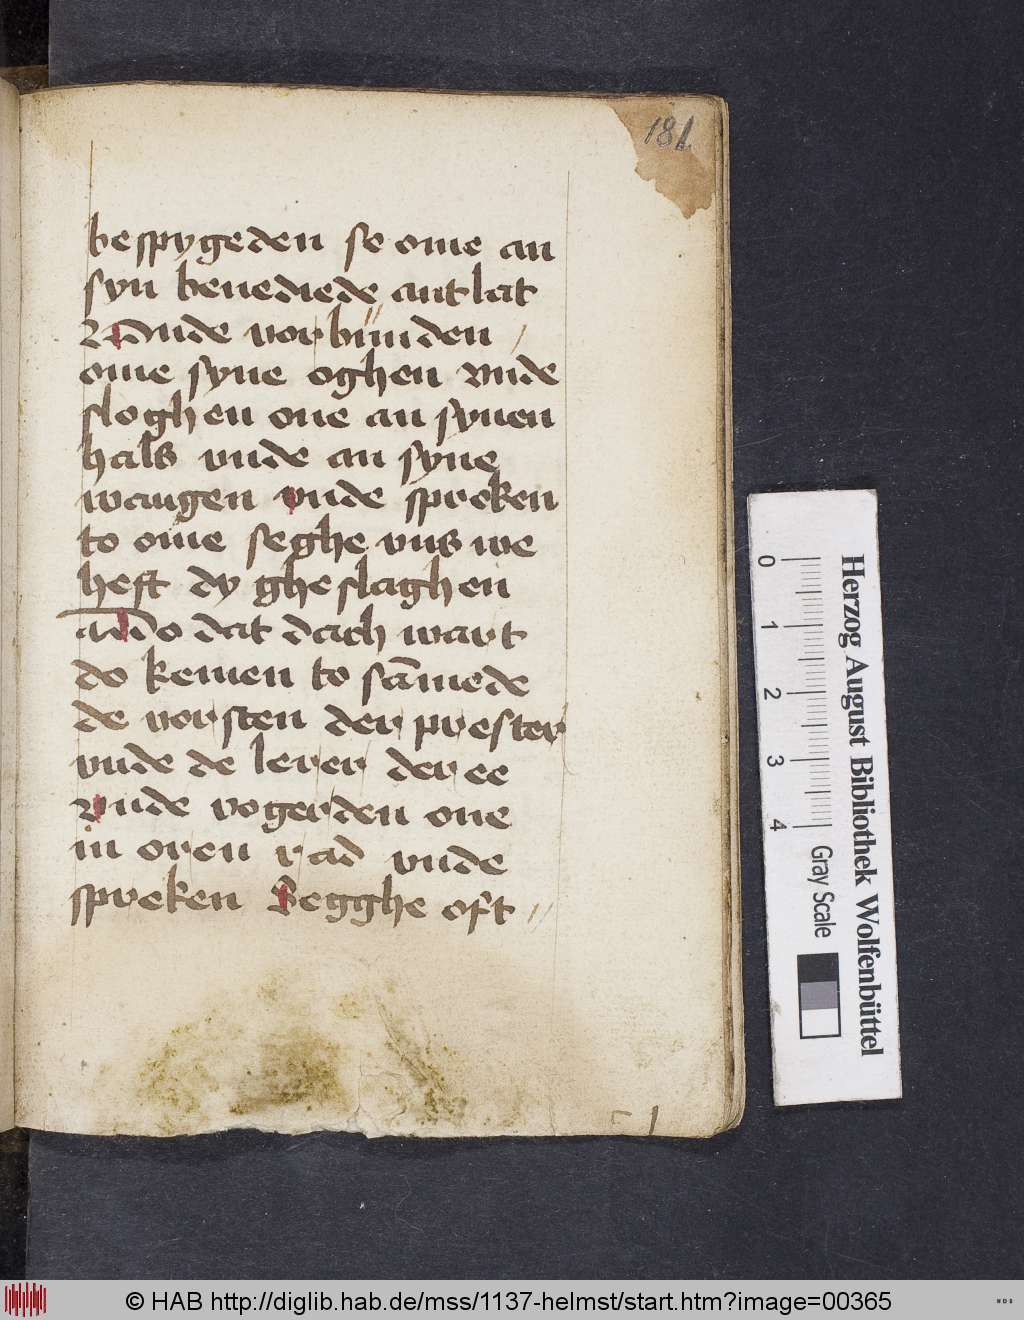 181
bespygeden se ome an
syn benediede antlat
Vnde vorbunden
ome syne oghen vnde
sloghen one an synen
hals vnde an syne
wangen vnde spreken
to ome seghe vns we
heft dy gheslaghen
do dat dach wart
do kemen to sām̄ede
de vorsten der prester
vnde de lerer der ee
Vnde vogerden one
in oren rad vnde
spreken Segghe oft //
0 1 2 3 4
Herzog August Bibliothek Wolfenbüttel
Gray Scale
© HAB http://diglib.hab.de/mss/1137-helmst/start.htm?image=00365